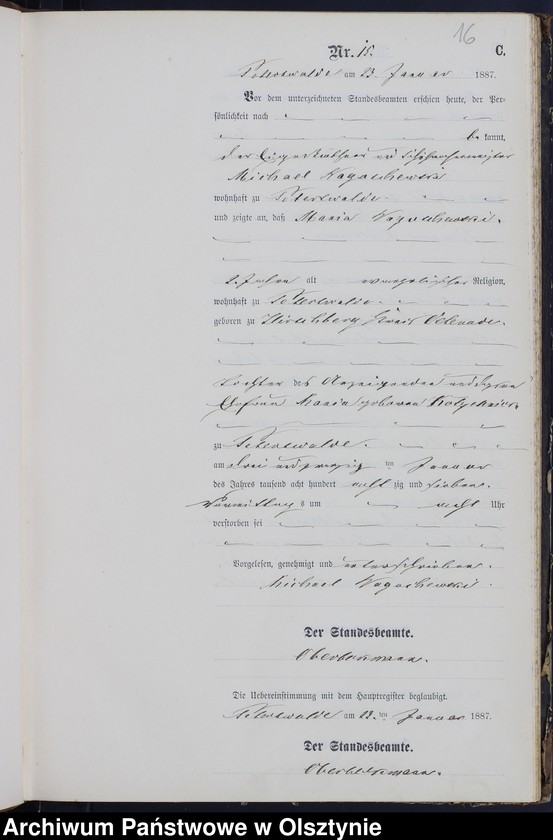 16
Nr. 15.
C.
Peterswalde am 23. Januar 1887.
Vor dem unterzeichneten Standesbeamten erschien heute, der Per-
sönlichkeit nach
be kannt,
der Eigenkäthner und
Michael
wohnhaft zu Peterswalde
und zeigte an, daß Maria
2 Jahre alt evangelischer Religion,
wohnhaft zu Peterswalde
geboren zu Hirschberg Kreis Osterode
Tochter des Anzeigenden und dessen
Ehefrau Maria geborenen
zu Peterswalde
am drei und zwanzig ten Januar
des Jahres tausend acht hundert acht zig und sieben
Vormittags um acht Uhr
verstorben sei
Vorgelesen, genehmigt und unterschrieben
Michael
Der Standesbeamte.
Die Uebereinstimmung mit dem Hauptregister beglaubigt.
Peterswalde am 23. ten Januar 1887.
Der Standesbeamte.
Archiwum Państwowe w Olsztynie